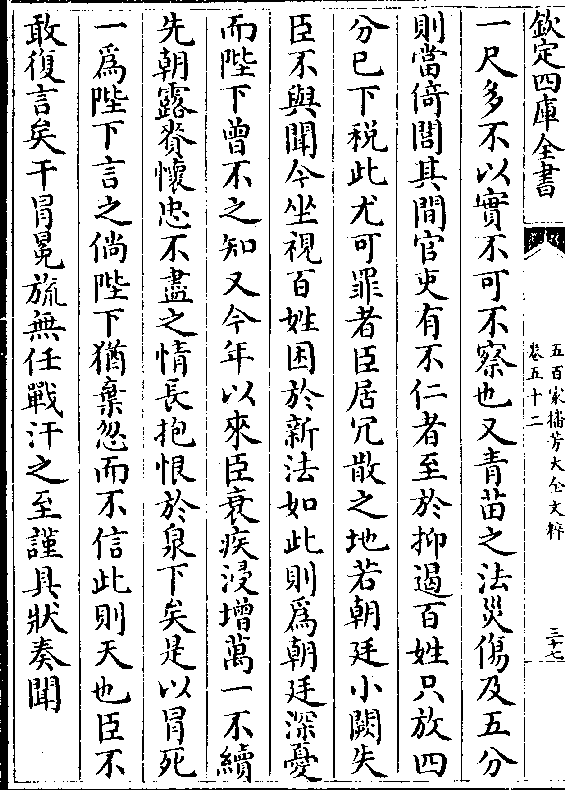 欽定四庫全書
五百家播芳大全文粹
卷五十二
三十七
一尺多不以實不可不察也又青苗之法災傷及五分
則當倚閣其間官吏有不仁者至於抑遏百姓只放四
分已下税此尤可罪者臣居冗散之地若朝廷小闕失
臣不與聞今坐視百姓困於新法如此則為朝廷深憂
而陛下曾不之知又今年以來臣衰疾浸增萬一不續
先朝露賫懷忠不盡之情長抱恨於泉下矣是以冒死
一為陛下言之倘陛下猶棄忽而不信此則天也臣不
敢復言矣干冐冕旒無任戰汗之至謹具狀奏聞